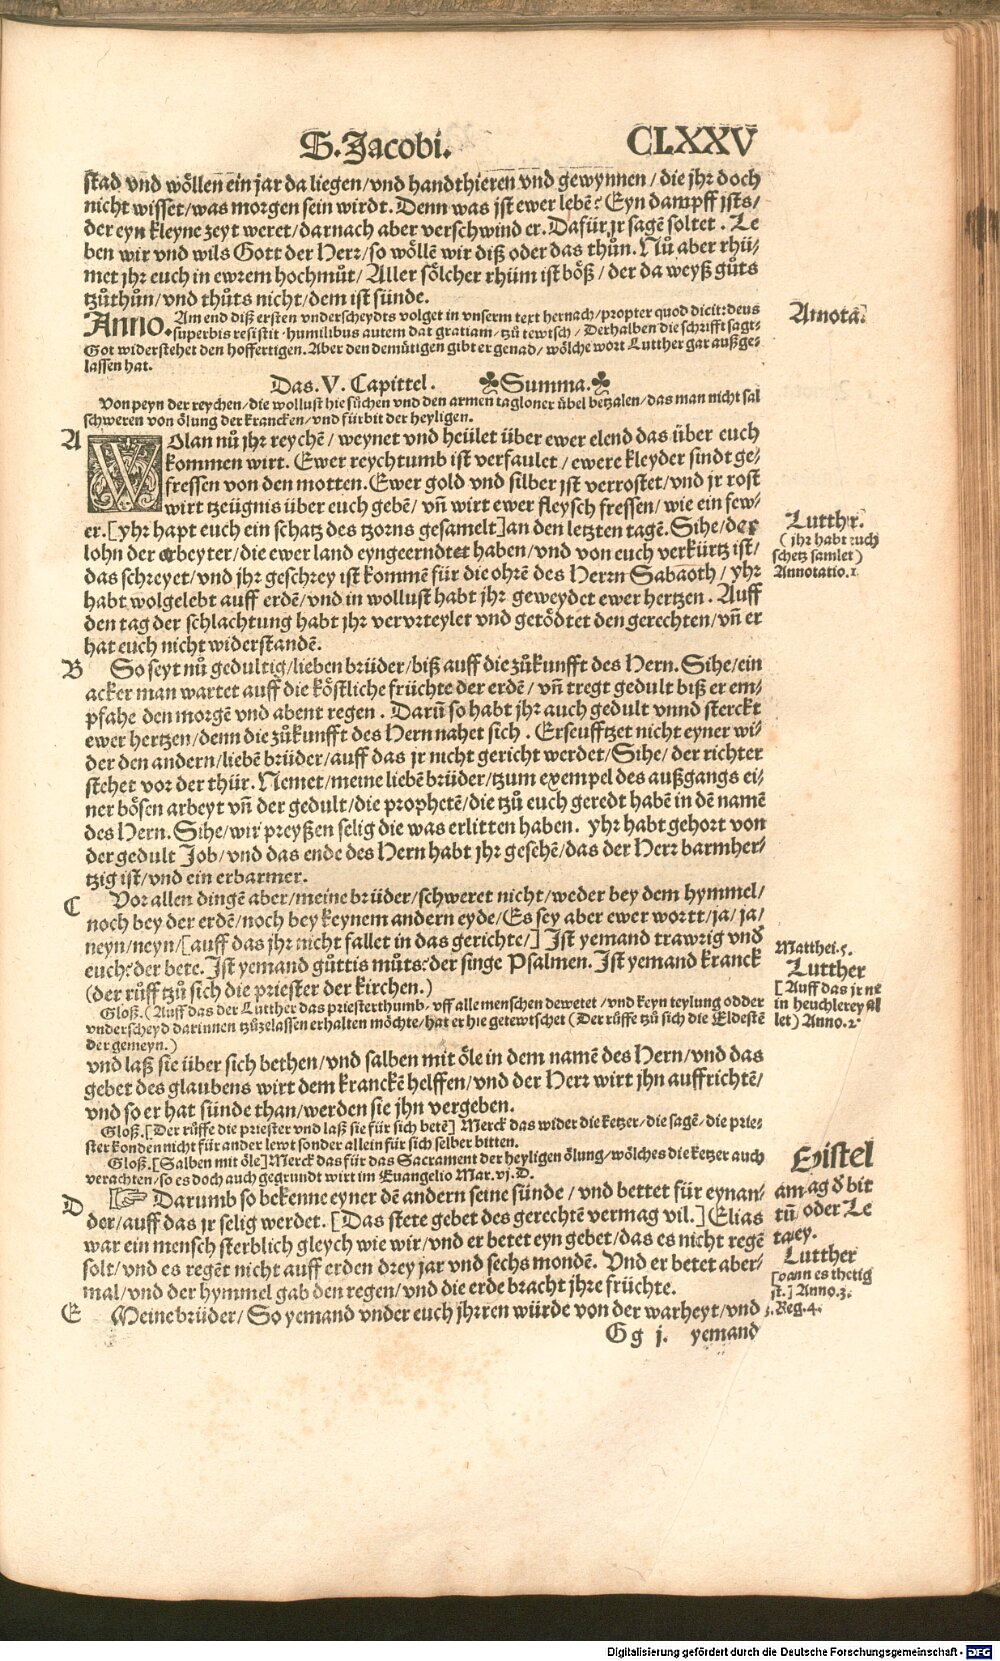 S. Jacobi. CLXXV
stad vnd wöllen ein jar da liegen/vnd handthieren vnd gewynnen/die jhr doch
nicht wisset/was morgen sein wirdt. Denn was jst ewer lebē? Eyn dampff jsts/
der eyn kleyne zeyt weret/darnach aber verschwind er. Dafür jr sagē soltet. Le
ben wir vnd wils Gott der Herr/so wöllē wir diß oder das thůn. Nů aber rhü-
met jhr euch in ewrem hochmůt/Aller sölcher rhüm ist böß/der da weyß gůts
tzůthůn/vnd thůts nicht/dem ist sünde.
Anno. Am end diß ersten vnderscheydts volget in vnserm text hernach/propter quod dicit: deus
superbis resistit, humilibus autem dat gratiam, tzů tewtsch/Derhalben die schrifft sagt:
Got widerstehet den hoffertigen. Aber den demütigen gibt er genad/wölche wort Lutther gar außge-
lassen hat.
Annota.
Das. V. Capittel. Summa.
Von peyn der reychen/die wollust hie sůchen vnd den armen tagloner übel betzalen/das man nicht sal
schweren von ölung der krancken/vnd fürbit der heyligen.
A WOlan nů jhr reychē/weynet vnd heület über ewer elend das über euch
kommen wirt. Ewer reychtumb ist verfaulet/ewere kleyder sindt ge-
fressen von den motten. Ewer gold vnd silber jst verrostet/vnd jr rost
wirt tzeügnis über euch gebē/vñ wirt ewer fleysch fressen/wie ein few-
er. [yhr hapt euch ein schatz des tzorns gesamelt] an den letzten tagē. Sihe/der
lohn der arbeyter/die ewer land eyngeerndtet haben/vnd von euch verkürtz ist/
das schreyet/vnd jhr geschrey ist kommē für die ohrē des Herrn Sabaoth/yhr
habt wolgelebt auff erdē/vnd in wollust habt jhr geweydet ewer hertzen. Auff
den tag der schlachtung habt jhr vervrteylet vnd getödtet den gerechten/vñ er
hat euch nicht widerstandē.
Lutther.
(jhr habt euch
schetz samlet)
Annotatio. 1.
B So seyt nů gedultig/lieben brüder/biß auff die zůkunfft des Hern. Sihe/ein
acker man wartet auff die köstliche früchte der erdē/vñ tregt gedult biß er em-
pfahe den morgē vnd abent regen. Darū so habt jhr auch gedult vnnd sterckt
ewer hertzen/denn die zůkunfft des Hern nahet sich. Erseufftzet nicht eyner wi-
der den andern/liebē brüder/auff das jr nicht gericht werdet/Sihe/der richter
stehet vor der thür. Nemet/meine liebē brüder/tzum exempel des außgangs ei-
ner bösen arbeyt vñ der gedult/die prophetē/die tzů euch geredt habē in dē namē
des Hern. Sihe/wir preyßen selig die was erlitten haben. yhr habt gehort von
der gedult Job/vnd das ende des Hern habt jhr gesehē/das der Herr barmher-
tzig ist/vnd ein erbarmer.
C Vor allen dingē aber/meine brüder/schweret nicht/weder bey dem hymmel/
noch bey der erdē/noch bey keynem andern eyde/Es sey aber ewer wortt/ja/ja/
neyn/neyn/[auff das jhr nicht fallet in das gerichte/] Ist yemand trawrig vnd
euch: der bete. Ist yemand gůttis můts: der singe Psalmen. Ist yemand kranck
(der rüff tzů sich die priester der kirchen.)
Matthei. 5.
Lutther
[Auff das jr ne
in heuchlerey al
let) Anno. 2.
Gloß. (Auff das der Lutther das priesterthumb, vff alle menschen dewetet/vnd keyn teylung odder
vnderscheyd darinnen tzůzelassen erhalten möchte/hat er hie getewtschet (Der rüffe tzů sich die Eldestē
der gemeyn.)
vnd laß sie über sich bethen/vnd salben mit öle in dem namē des Hern/vnd das
gebet des glaubens wirt dem kranckē helffen/vnd der Herr wirt jhn auffrichtē/
vnd so er hat sünde than/werden sie jhn vergeben.
Gloß. [Der rüffe die priester vnd laß sie für sich betē] Merck das wider die ketzer/die sagē/die prie-
ster konden nicht für ander lewt sonder allein für sich selber bitten.
Gloß. [Salben mit öle] Merck das für das Sacrament der heyligen ölung/wölches die ketzer auch
verachten/so es doch auch gegrundt wirt im Euangelio Mar. vj. D.
D Darumb so bekenne eyner dē andern seine sünde/vnd bettet für eynan-
der/auff das jr selig werdet. [Das stete gebet des gerechtē vermag vil.] Elias
war ein mensch sterblich gleych wie wir/vnd er betet eyn gebet/das es nicht regē
solt/vnd es regēt nicht auff erden drey jar vnd sechs mondē. Vnd er betet aber-
mal/vnd der hymmel gab den regen/vnd die erde bracht jhre früchte.
Epistel
am ag d bit
tū/oder Le
taney.
Lutther
[wann es thetig
st.] Anno. 3.
3. Reg. 4.
E Meine brüder/So yemand vnder euch jhrren würde von der warheyt/vnd
G g j. yemand
Digitalisierung gefördert durch die Deutsche Forschungsgemeinschaft - DFG